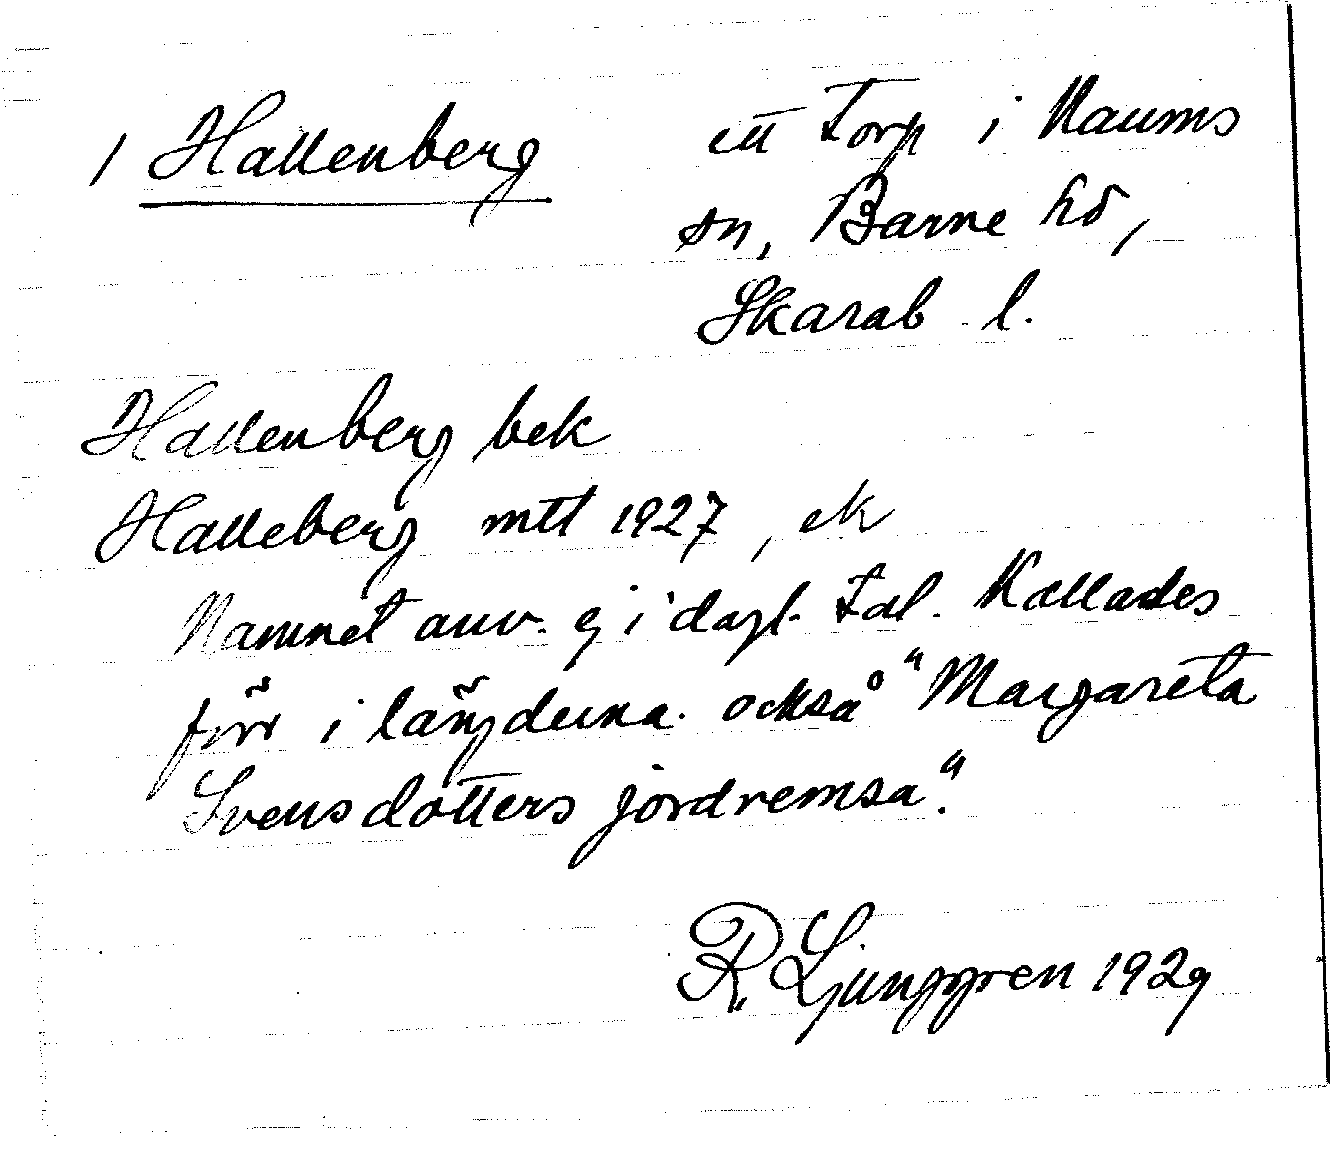 1 Hallenberg
ett torp i Naums
sn, Barne hd,
Skarab. l.
Hallenberg bek
Halleberg mtl 1927, ek
Namnet anv. ej i dagl. tal. Kallades
förr i längderna också "Margareta
Svensdotters jordremsa".
R. Ljunggren 1929